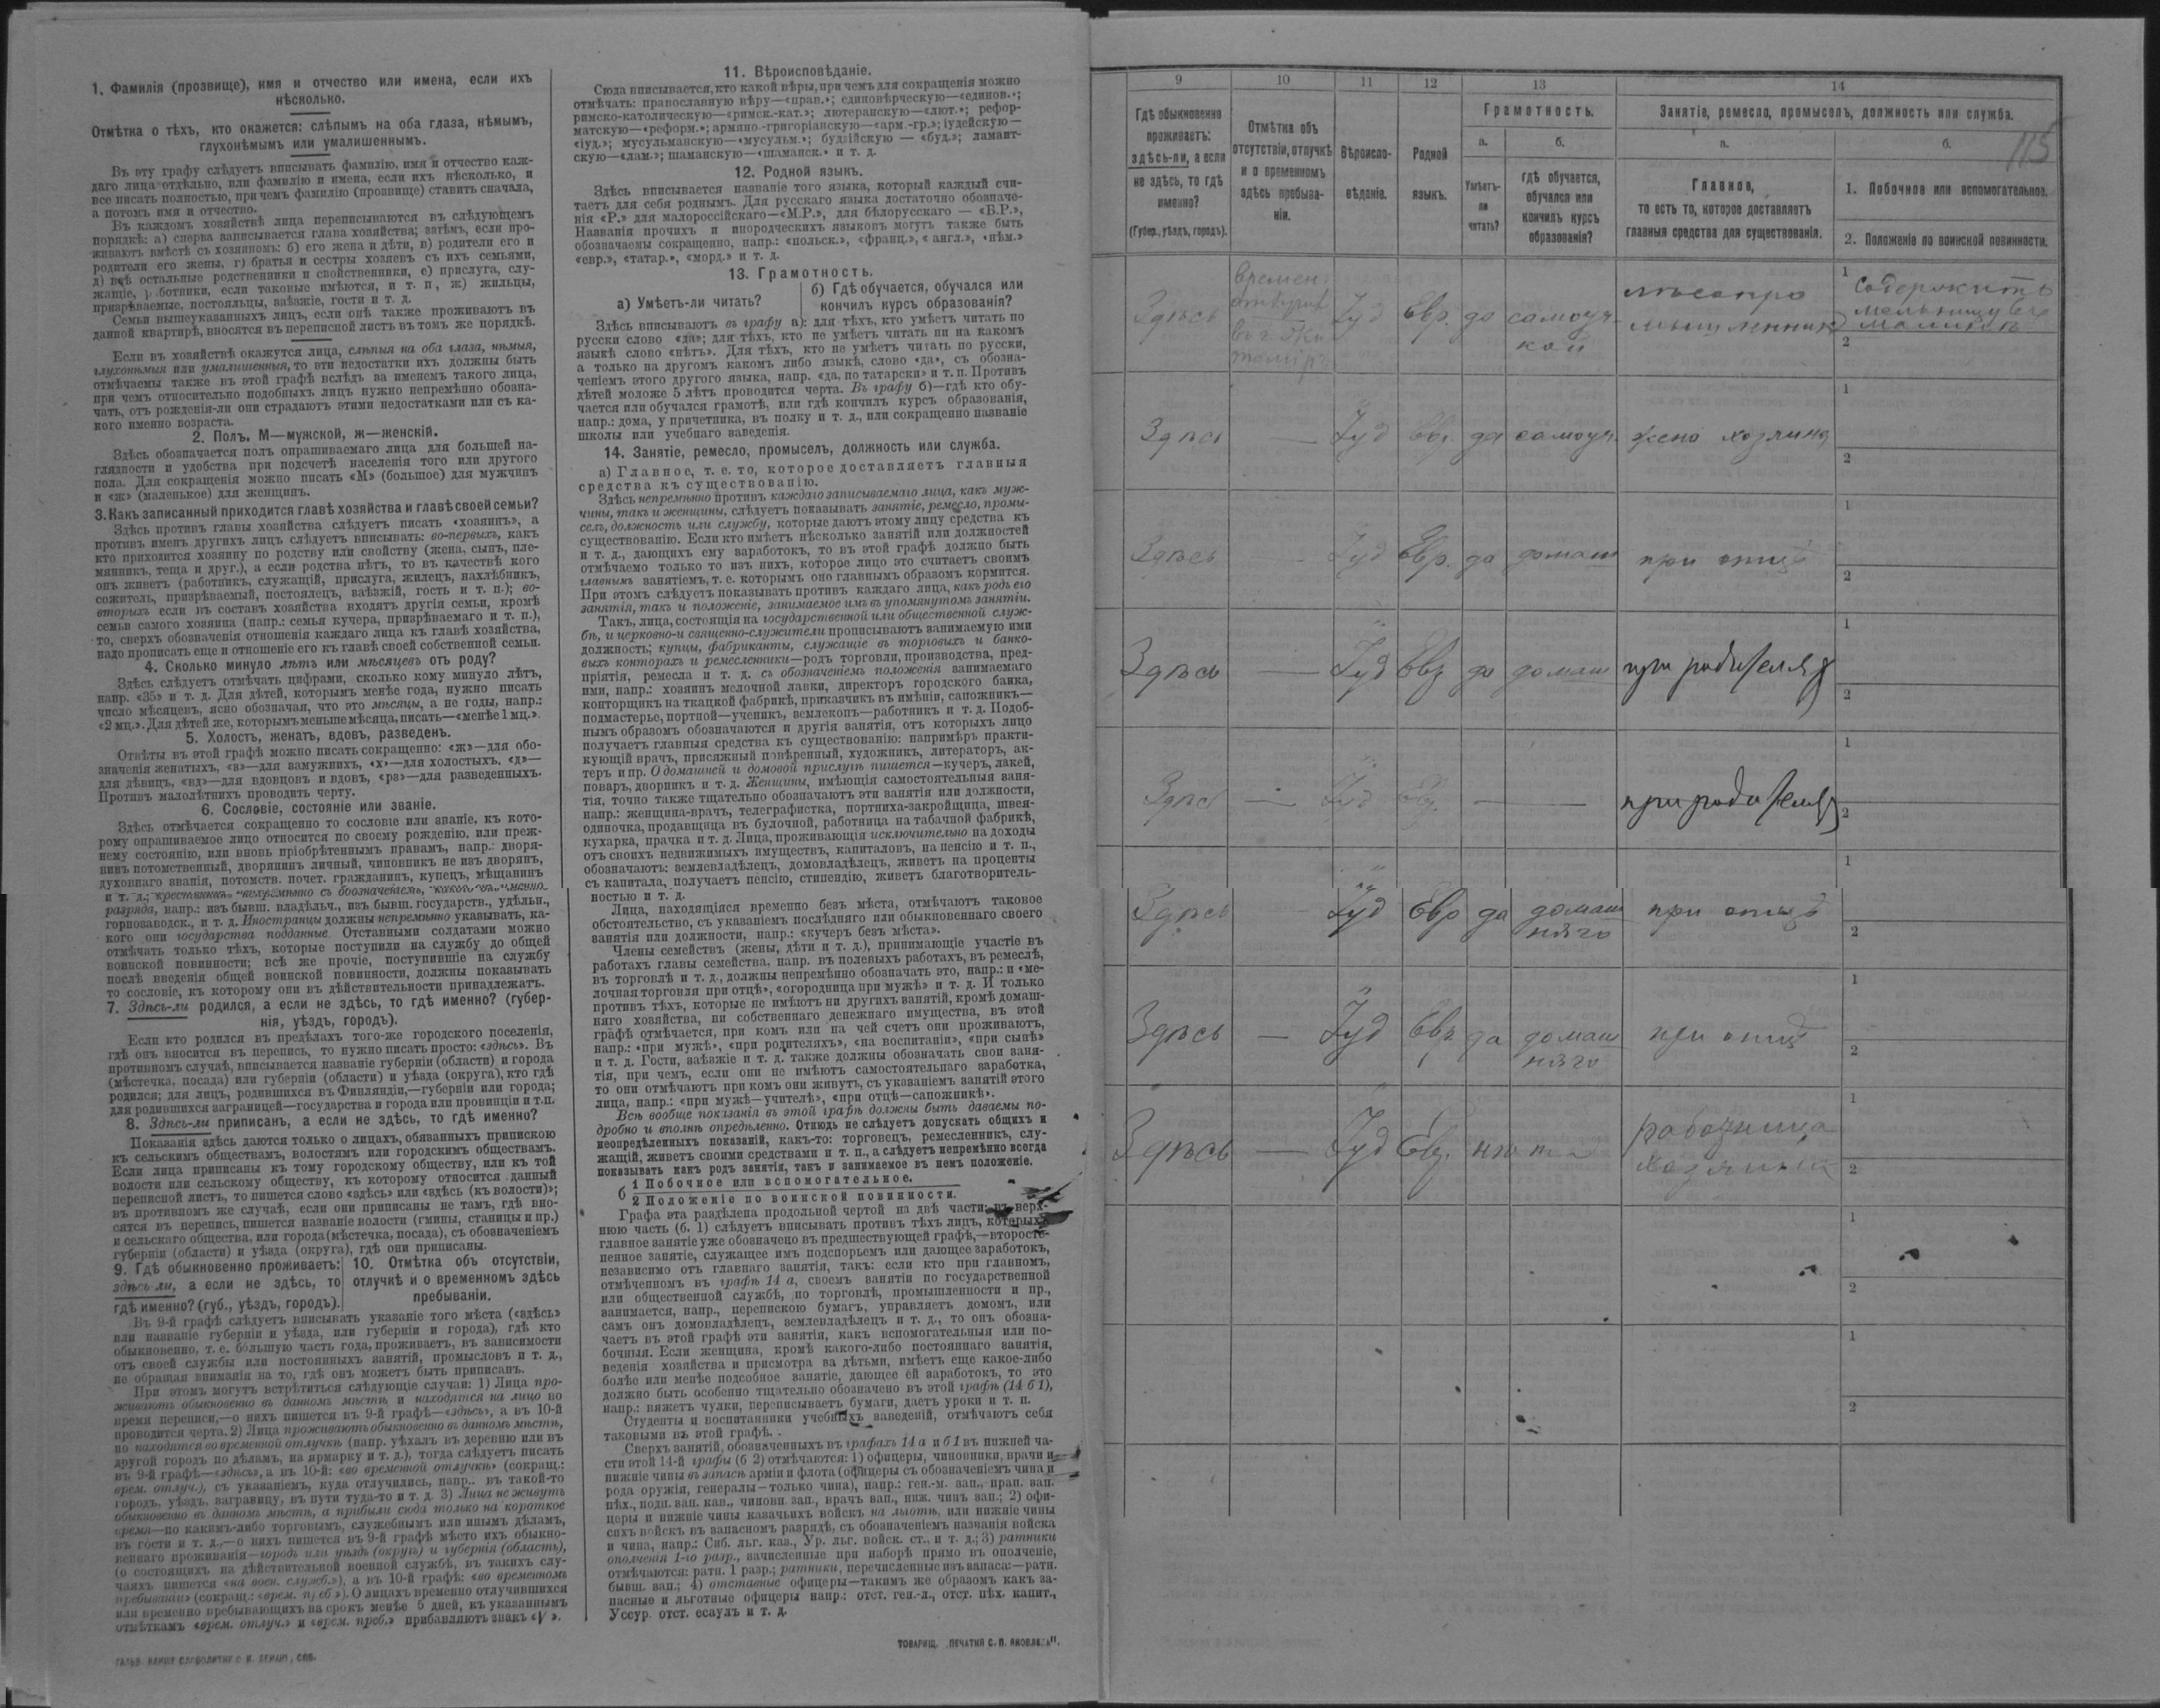 1. Фамилія (прозвище), имя и отчество или имена, если ихъ
нѣсколько.
Отмѣтка о тѣхъ, кто окажется: слѣпымъ на оба глаза, нѣмымъ,
глухонѣмымъ или умалишеннымъ.
Въ эту графу слѣдуетъ вписывать фамилію, имя и отчество каж-
даго лица отдѣльно, или фамилію и имена, если ихъ нѣсколько, и
все писать полностью, при чемъ фамилію (прозвище) ставить сначала,
а потомъ имя и отчество.
Въ каждомъ хозяйствѣ лица переписываются въ слѣдующемъ
порядкѣ: а) сперва записывается глава хозяйства; затѣмъ, если про-
живаютъ вмѣстѣ съ хозяиномъ: б) его жена и дѣти, в) родители его и
родители его жены, г) братья и сестры хозяевъ съ ихъ семьями,
д) всѣ остальные родственники и свойственники, е) прислуга, слу-
жащіе, работники, если таковые имѣются, и т. п, ж) жильцы,
призрѣваемые, постояльцы, заѣзжіе, гости и т. д.
Семьи вышеуказанныхъ лицъ, если онѣ также проживаютъ въ
данной квартирѣ, вносятся въ переписной листъ въ томъ же порядкѣ.
Если въ хозяйствѣ окажутся лица, слѣпыя на оба глаза, нѣмыя,
глухонѣмыя или умалишенныя, то эти недостатки ихъ должны быть
отмѣчаемы также въ этой графѣ вслѣдъ за именемъ такого лица,
при чемъ относительно подобныхъ лицъ нужно непремѣнно обозна-
чать, отъ рожденія-ли они страдаютъ этими недостатками или съ ка-
кого именно возраста.
2. Полъ. М—мужской, ж—женскій.
Здѣсь обозначается полъ опрашиваемаго лица для большей на-
глядности и удобства при подсчетѣ населенія того или другого
пола. Для сокращенія можно писать «М» (большое) для мужчинъ
и «ж» (маленькое) для женщинъ.
3. Какъ записанный приходится главѣ хозяйства и главѣ своей семьи?
Здѣсь противъ главы хозяйства слѣдуетъ писать «хозяинъ», а
противъ именъ другихъ лицъ слѣдуетъ вписывать: во-первыхъ, какъ
кто приходится хозяину по родству или свойству (жена, сынъ, пле-
мянникъ, теща и друг.), а если родства нѣтъ, то въ качествѣ кого
онъ живетъ (работникъ, служащій, прислуга, жилецъ, нахлѣбникъ,
сожитель, призрѣваемый, постоялецъ, заѣзжій, гость и т. п.); во-
вторыхъ если въ составъ хозяйства входятъ другія семьи, кромѣ
семьи самого хозяина (напр.: семья кучера, призрѣваемаго и т. п.),
то, сверхъ обозначенія отношенія каждаго лица къ главѣ хозяйства,
надо прописать еще и отношеніе его къ главѣ своей собственной семьи.
4. Сколько минуло лѣтъ или мѣсяцевъ отъ роду?
Здѣсь слѣдуетъ отмѣчать цифрами, сколько кому минуло лѣтъ,
напр. «35» и т. д. Для дѣтей, которымъ менѣе года, нужно писать
число мѣсяцевъ, ясно обозначая, что это мѣсяцы, а не годы, напр.:
«2 мц.». Для дѣтей же, которымъ меньше мѣсяца, писать—«менѣе 1 мц.».
5. Холостъ, женатъ, вдовъ, разведенъ.
Отвѣты въ этой графѣ можно писать сокращенно: «ж»—для обо-
значенія женатыхъ, «з»—для замужнихъ, «х»—для холостыхъ, «д»—
для дѣвицъ, «вд»—для вдовцовъ и вдовъ, «рз»—для разведенныхъ.
Противъ малолѣтнихъ проводить черту.
6. Сословіе, состояніе или званіе.
Здѣсь отмѣчается сокращенно то сословіе или званіе, къ кото-
рому опрашиваемое лицо относится по своему рожденію, или преж-
нему состоянію, или вновь пріобрѣтеннымъ правамъ, напр.: дворя-
нинъ потомственный, дворянинъ личный, чиновникъ не изъ дворянъ,
духовнаго званія, потомств. почет. гражданинъ, купецъ, мѣщанинъ
и т. д.;
разряда, напр.: изъ бывш. владѣльч., изъ бывш. государств., удѣльн.,
горнозаводск., и т. д. Иностранцы должны непремѣнно указывать, ка-
кого они государства подданные. Отставными солдатами можно
отмѣчать только тѣхъ, которые поступили на службу до общей
воинской повинности; всѣ же прочіе, поступившіе на службу
послѣ введенія общей воинской повинности, должны показывать
то сословіе, къ которому они въ дѣйствительности принадлежатъ.
7. Здѣсь-ли родился, а если не здѣсь, то гдѣ именно? (губер-
нія, уѣздъ, городъ).
Если кто родился въ предѣлахъ того-же городского поселенія,
гдѣ онъ вносится въ перепись, то нужно писать просто: «здѣсь». Въ
противномъ случаѣ, вписывается названіе губерніи (области) и города
(мѣстечка, посада) или губерніи (области) и уѣзда (округа), кто гдѣ
родился; для лицъ, родившихся въ Финляндіи,—губерніи или города;
для родившихся заграницей—государства и города или провинціи и т.п.
8. Здѣсь-ли приписанъ, а если не здѣсь, то гдѣ именно?
Показанія здѣсь даются только о лицахъ, обязанныхъ припискою
къ сельскимъ обществамъ, волостямъ или городскимъ обществамъ.
Если лица приписаны къ тому городскому обществу, или къ той
волости или сельскому обществу, къ которому относится данный
переписной листъ, то пишется слово «здѣсь» или «здѣсь (къ волости)»;
въ противномъ же случаѣ, если они приписаны не тамъ, гдѣ вно-
сятся въ перепись, пишется названіе волости (гмины, станицы и пр.)
и сельскаго общества, или города (мѣстечка, посада), съ обозначеніемъ
губерніи (области) и уѣзда (округа), гдѣ они приписаны.
9. Гдѣ обыкновенно проживаетъ:
здѣсь-ли, а если не здѣсь, то
гдѣ именно? (губ., уѣздъ, городъ).
10. Отмѣтка объ отсутствіи,
отлучкѣ и о временномъ здѣсь
пребываніи.
Въ 9-й графѣ слѣдуетъ вписывать указаніе того мѣста («здѣсь»
или названіе губерніи и уѣзда, или губерніи и города), гдѣ кто
обыкновенно, т. е. большую часть года, проживаетъ, въ зависимости
отъ своей службы или постоянныхъ занятій, промысловъ и т. д.,
не обращая вниманія на то, гдѣ онъ можетъ быть приписанъ.
При этомъ могутъ встрѣтиться слѣдующіе случаи: 1) Лица про-
живаютъ обыкновенно въ данномъ мѣстѣ, и находятся на лицо во
время переписи,—о нихъ пишется въ 9-й графѣ—«здѣсь», а въ 10-й
проводится черта. 2) Лица проживаютъ обыкновенно въ данномъ мѣстѣ,
но находятся во временной отлучкѣ (напр. уѣхалъ въ деревню или въ
другой городъ по дѣламъ, на ярмарку и т. д.), тогда слѣдуетъ писать
въ 9-й графѣ—«здѣсь», а въ 10-й: «во временной отлучкѣ» (сокращ.:
врем. отлуч.), съ указаніемъ, куда отлучились, напр.: въ такой-то
городъ, уѣздъ, заграницу, въ пути туда-то и т. д. 3) Лица не живутъ
обыкновенно въ данномъ мѣстѣ, а прибыли сюда только на короткое
время—по какимъ-либо торговымъ, служебнымъ или инымъ дѣламъ,
въ гости и т. д.,—о нихъ пишется въ 9-й графѣ мѣсто ихъ обыкно-
веннаго проживанія—городъ или уѣздъ (округъ) и губернія (область),
(о состоящихъ на дѣйствительной военной службѣ, въ такихъ слу-
чаяхъ пишется «на воен. служб.»), а въ 10-й графѣ: «во временномъ
пребываніи» (сокращ.: «врем. преб»). О лицахъ временно отлучившихся
или временно пребывающихъ на срокъ менѣе 5 дней, къ указаннымъ
отмѣткамъ «врем. отлуч.» и «врем. преб.» прибавляютъ знакъ «V».
11. Вѣроисповѣданіе.
Сюда вписывается, кто какой вѣры, при чемъ для сокращенія можно
отмѣчать: православную вѣру—«прав.»; единовѣрческую—«единов.»;
римско-католическую—«римск.-кат.»; лютеранскую—«лют.»; рефор-
матскую—«реформ.»; армяно.-григоріанскую—«арм.-гр.»; іудейскую—
«іуд.»; мусульманскую—«мусульм.»; буддійскую — «буд.»; ламаит-
скую—«лам.»; шаманскую—«шаманск.» и т. д.
12. Родной языкъ.
Здѣсь вписывается названіе того языка, который каждый счи-
таетъ для себя роднымъ. Для русскаго языка достаточно обозначе-
нія «Р.» для малороссійскаго—«М.Р.», для бѣлорусскаго — «Б.Р.»,
Названія прочихъ и инородческихъ языковъ могутъ также быть
обозначаемы сокращенно, напр.: «польск.», «франц.», «англ.», «нѣм.»
«евр.», «татар.», «морд.» и т. д.
13. Грамотность.
а) Умѣетъ-ли читать?
б) Гдѣ обучается, обучался или
кончилъ курсъ образованія?
Здѣсь вписываютъ въ графу а): для тѣхъ, кто умѣетъ читать по
русски слово «да»; для тѣхъ, кто не умѣетъ читать ни на какомъ
языкѣ слово «нѣтъ». Для тѣхъ, кто не умѣетъ читать по русски,
а только на другомъ какомъ либо языкѣ, слово «да», съ обозна-
ченіемъ этого другого языка, напр. «да, по татарски» и т. п. Противъ
дѣтей моложе 5 лѣтъ проводится черта. Въ графу б)—гдѣ кто обу-
чается или обучался грамотѣ, или гдѣ кончилъ курсъ образованія,
напр.: дома, у причетника, въ полку и т. д., или сокращенно названіе
школы или учебнаго заведенія.
14. Занятіе, ремесло, промыселъ, должность или служба.
а) Главное, т. е. то, которое доставляетъ главныя
средства къ существованію.
Здѣсь непремѣнно противъ каждаго записываемаго лица, какъ муж-
чины, такъ и женщины, слѣдуетъ показывать занятіе, ремесло, промы-
селъ, должность или службу, которые даютъ этому лицу средства къ
существованію. Если кто имѣетъ нѣсколько занятій или должностей
и т. д., дающихъ ему заработокъ, то въ этой графѣ должно быть
отмѣчаемо только то изъ нихъ, которое лицо это считаетъ своимъ
главнымъ занятіемъ, т. е. которымъ оно главнымъ образомъ кормится.
При этомъ слѣдуетъ показывать противъ каждаго лица, какъ родъ его
занятія, такъ и положеніе, занимаемое имъ въ упомянутомъ занятіи.
Такъ, лица, состоящія на государственной или общественной служ-
бѣ, и церковно-и священно-служители прописываютъ занимаемую ими
должность; купцы, фабриканты, служащіе въ торговыхъ и банко-
выхъ конторахъ и ремесленники—родъ торговли, производства, пред-
пріятія, ремесла и т. д. съ обозначеніемъ положенія занимаемаго
ими, напр.: хозяинъ мелочной лавки, директоръ городского банка,
конторщикъ на ткацкой фабрикѣ, приказчикъ въ имѣніи, сапожникъ—
подмастерье, портной—ученикъ, землекопъ—работникъ и т. д. Подоб-
нымъ образомъ обозначаются и другія занятія, отъ которыхъ лицо
получаетъ главныя средства къ существованію: напримѣръ практи-
кующій врачъ, присяжный повѣренный, художникъ, литераторъ, ак-
теръ и пр. О домашней и домовой прислугѣ пишется—кучеръ, лакей,
поваръ, дворникъ и т. д. Женщины, имѣющія самостоятельныя заня-
тія, точно также тщательно обозначаютъ эти занятія или должности,
напр.: женщина-врачъ, телеграфистка, портниха-закройщица, швея-
одиночка, продавщица въ булочной, работница на табачной фабрикѣ,
кухарка, прачка и т. д. Лица, проживающія исключительно на доходы
отъ своихъ недвижимыхъ имуществъ, капиталовъ, на пенсію и т. п.,
обозначаютъ: землевладѣлецъ, домовладѣлецъ, живетъ на проценты
съ капитала, получаетъ пенсію, стипендію, живетъ благотворитель-
ностью и т. д.
Лица, находящіяся временно безъ мѣста, отмѣчаютъ таковое
обстоятельство, съ указаніемъ послѣдняго или обыкновеннаго своего
занятія или должности, напр.: «кучеръ безъ мѣста».
Члены семействъ (жены, дѣти и т. д.), принимающіе участіе въ
работахъ главы семейства, напр. въ полевыхъ работахъ, въ ремеслѣ,
въ торговлѣ и т. д., должны непремѣнно обозначать это, напр.: и «ме-
лочная торговля при отцѣ», «огородница при мужѣ» и т. д. И только
противъ тѣхъ, которые не имѣютъ ни другихъ занятій, кромѣ домаш-
няго хозяйства, ни собственнаго денежнаго имущества, въ этой
графѣ отмѣчается, при комъ или на чей счетъ они проживаютъ,
напр.: «при мужѣ», «при родителяхъ», «на воспитаніи», «при сынѣ»
и т. д. Гости, заѣзжіе и т. д. также должны обозначать свои заня-
тія, при чемъ, если они не имѣютъ самостоятельнаго заработка,
то они отмѣчаютъ при комъ они живутъ, съ указаніемъ занятій этого
лица, напр.: «при мужѣ—учителѣ», «при отцѣ—сапожникѣ».
Всѣ вообще показанія въ этой графѣ должны быть даваемы по-
дробно и вполнѣ опредѣленно. Отнюдь не слѣдуетъ допускать общихъ и
неопредѣленныхъ показаній, какъ-то: торговецъ, ремесленникъ, слу-
жащій, живетъ своими средствами и т. п., а слѣдуетъ непремѣнно всегда
показывать какъ родъ занятія, такъ и занимаемое въ немъ положеніе.
б 1 Побочное или вспомогательное.
2 Положеніе по воинской повинности.
Графа эта раздѣлена продольной чертой на двѣ части: въ верх-
нюю часть (б. 1) слѣдуетъ вписывать противъ тѣхъ лицъ, которыхъ
главное занятіе уже обозначено въ предшествующей графѣ,—второсте-
пенное занятіе, служащее имъ подспорьемъ или дающее заработокъ,
независимо отъ главнаго занятія, такъ: если кто при главномъ,
отмѣченномъ въ графѣ 14 а, своемъ занятіи по государственной
или общественной службѣ, по торговлѣ, промышленности и пр.,
занимается, напр., перепискою бумагъ, управляетъ домомъ, или
самъ онъ домовладѣлецъ, землевладѣлецъ и т. д., то онъ обозна-
чаетъ въ этой графѣ эти занятія, какъ вспомогательныя или по-
бочныя. Если женщина, кромѣ какого-либо постояннаго занятія,
веденія хозяйства и присмотра за дѣтьми, имѣетъ еще какое-либо
болѣе или менѣе подсобное занятіе, дающее ей заработокъ, то это
должно быть особенно тщательно обозначено въ этой графѣ (14 б 1),
напр.: вяжетъ чулки, переписываетъ бумаги, даетъ уроки и т. п.
Студенты и воспитанники учебныхъ заведеній, отмѣчаютъ себя
таковыми въ этой графѣ.
Сверхъ занятій, обозначенныхъ въ графахъ 14 а и б 1 въ нижней ча-
сти этой 14-й графы (б 2) отмѣчаются: 1) офицеры, чиновники, врачи и
нижніе чины въ запасѣ арміи и флота (офицеры съ обозначеніемъ чина и
рода оружія, генералы—только чина), напр.: ген.-м. зап., прап. зап.
пѣх., подп. зап. кав., чиновн. зап., врачъ зап., ниж. чинъ зап.; 2) офи-
церы и нижніе чины казачьихъ войскъ на льготѣ, или нижніе чины
сихъ войскъ въ запасномъ разрядѣ, съ обозначеніемъ названія войска
и чина, напр.: Сиб. льг. каз., Ур. льг. войск. ст., и т. д.; 3) ратники
ополченія 1-го разр., зачисленные при наборѣ прямо въ ополченіе,
отмѣчаются: ратн. 1 разр.; ратники, перечисленные изъ запаса:—ратн.
бывш. зап.; 4) отставные офицеры—такимъ же образомъ какъ за-
пасные и льготные офицеры напр.: отст. ген.-л., отст. пѣх. капит.,
Уссур. отст. есаулъ и т. д.
ТОВАРИЩ. „ПЕЧАТНЯ С. П. ЯКОВЛЕВА".
9 10 11 12 13 14
115
Гдѣ обыкновенно
проживаетъ:
здѣсь-ли, а если
не здѣсь, то гдѣ
именно?
(Губер., уѣздъ, городъ).
Отмѣтка объ
отсутствіи, отлучкѣ
и о временномъ
здѣсь пребыва-
ніи.
Вѣроиспо-
вѣданіе.
Родной
языкъ.
Грамотность.
а.
Умѣетъ-
ли
читать?
б.
гдѣ обучается,
обучался или
кончилъ курсъ
образованія?
Занятіе, ремесло, промыселъ, должность или служба.
а.
Главное,
то есть то, которое доставляетъ
главныя средства для существованія.
б.
1. Побочное или вспомогательное.
2. Положеніе по воинской повинности.
Здѣсь
времен
въ г. Жи
томірѣ
Іуд Евр. да самоуч
кой
лѣсопро
мышленник
1 содержитъ
мельницу
2
Здѣсь — Іуд Евр. да самоуч. жена хозяина
1
2
Здѣсь - Іуд Евр. да домаш при отцѣ
1
2
Здѣсь — Іуд Евр да домаш при родителях
1
2
Здѣс — Іуд Евр. — — при родителях
1
2
Здѣсь Іуд Евр да домаш
няго
при отцѣ
1
2
Здѣсь — Іуд Евр да домаш
няго
при отцѣ
1
2
Здѣсь — Іуд Евр. нѣт — работница
1
2
1
2
1
2